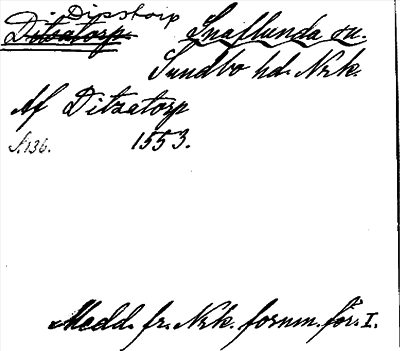 Dipstorp
Ditzatorp Snaflunda sn.
Sundbo hd. Nrk.
Af Ditzatorp
S. 136. 1553.
Medd. fr. Nrk. fornm. för. I.